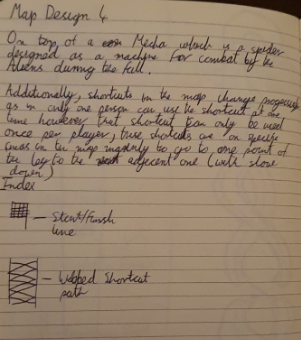 Map Design 4
On top of a Mecha which is a spider
designed as a machine for combat by the
Aliens during the fall.
Additionally, shortcuts in the map change
as in only one person can use the shortcut at one
time however that shortcut can only be used
once per player, these shortcuts are on specific
in the map mainly to go to one point of
the leg to the adjacent one (with slow
down)
Index
— Start/Finish
line
— Webbed Shortcut
path